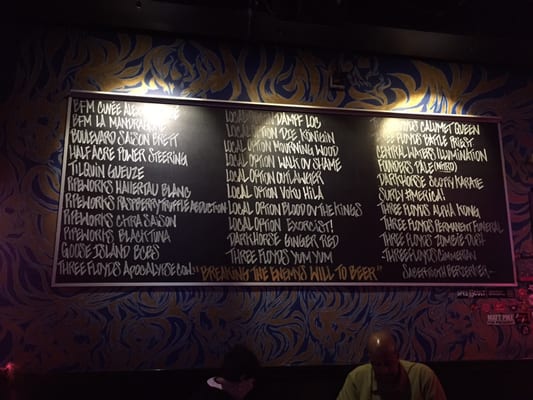 BFM CUVÉE
BFM LA
BOULEVARD SAISON BRETT
HALFACRE POWER STEERING
TILQUIN GUEUZE
PIPEWORKS HALLERTAU BLANC
PIPEWORKS RASPBERRY TRUFFLE ABDUCTION
PIPEWORKS CITRA SAISON
PIPEWORKS BLACK TUNA
GOOSE ISLAND BCBS
THREE FLOYDS APOCALYPSE COW
LOCAL OPTION DAMPF LOC
LOCAL OPTION DIE KÖNIGIN
LOCAL OPTION MOURNING WOOD
LOCAL OPTION WALK OV SHAME
LOCAL OPTION OUTLAWGER
LOCAL OPTION VOKU HILA
LOCAL OPTION BLOOD OV THE KINGS
LOCAL OPTION EXORCIST!
DARKHORSE GINGER RED
THREE FLOYDS YUM YUM
"BREAKING THE ENEMYS WILL TO BEER"
THREE FLOYDS CALUMET QUEEN
THREE FLOYDS BATTLE PRIEST
CENTRAL WATERS ILLUMINATION
FOUNDERS PALE (NITRO)
DARKHORSE SCOTTY KARATE
SURLY #MERICA!
THREE FLOYDS ALPHA KONG
THREE FLOYDS PERMANENT FUNERAL
THREE FLOYDS ZOMBIE DUST
THREE FLOYDS CIMMERIAN
SABERTOOTH BERSERKER
MATT PIKE